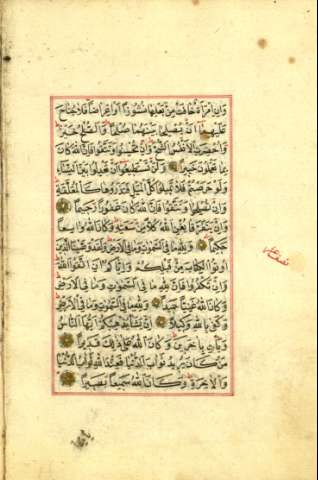 وَإِنِ امْرَأَةٌ خَافَتْ مِنْ بَعْلِهَا نُشُوزًا أَوْ إِعْرَاضًا فَلَا جُنَاحَ
عَلَيْهِمَا أَنْ يُصْلِحَا بَيْنَهُمَا صُلْحًا وَالصُّلْحُ خَيْرٌ
وَأُحْضِرَتِ الْأَنْفُسُ الشُّحَّ وَإِنْ تُحْسِنُوا وَتَتَّقُوا فَإِنَّ اللَّهَ كَانَ
بِمَا تَعْمَلُونَ خَبِيرًا وَلَنْ تَسْتَطِيعُوا أَنْ تَعْدِلُوا بَيْنَ النِّسَاءِ
وَلَوْ حَرَصْتُمْ فَلَا تَمِيلُوا كُلَّ الْمَيْلِ فَتَذَرُوهَا كَالْمُعَلَّقَةِ
وَإِنْ تُصْلِحُوا وَتَتَّقُوا فَإِنَّ اللَّهَ كَانَ غَفُورًا رَحِيمًا
وَإِنْ يَتَفَرَّقَا يُغْنِ اللَّهُ كُلًّا مِنْ سَعَتِهِ وَكَانَ اللَّهُ وَاسِعًا
حَكِيمًا وَلِلَّهِ مَا فِي السَّمَوَاتِ وَمَا فِي الْأَرْضِ وَلَقَدْ وَصَّيْنَا الَّذِينَ
أُوتُوا الْكِتَابَ مِنْ قَبْلِكُمْ وَإِيَّاكُمْ أَنِ اتَّقُوا اللَّهَ
وَإِنْ تَكْفُرُوا فَإِنَّ لِلَّهِ مَا فِي السَّمَوَاتِ وَمَا فِي الْأَرْضِ
وَكَانَ اللَّهُ غَنِيًّا حَمِيدًا وَلِلَّهِ مَا فِي السَّمَوَاتِ وَمَا فِي الْأَرْضِ
وَكَفَى بِاللَّهِ وَكِيلًا إِنْ يَشَأْ يُذْهِبْكُمْ أَيُّهَا النَّاسُ
وَيَأْتِ بِآخَرِينَ وَكَانَ اللَّهُ عَلَى ذَلِكَ قَدِيرًا
مَنْ كَانَ يُرِيدُ ثَوَابَ الدُّنْيَا فَعِنْدَ اللَّهِ ثَوَابُ الدُّنْيَا
وَالْآخِرَةِ وَكَانَ اللَّهُ سَمِيعًا بَصِيرًا